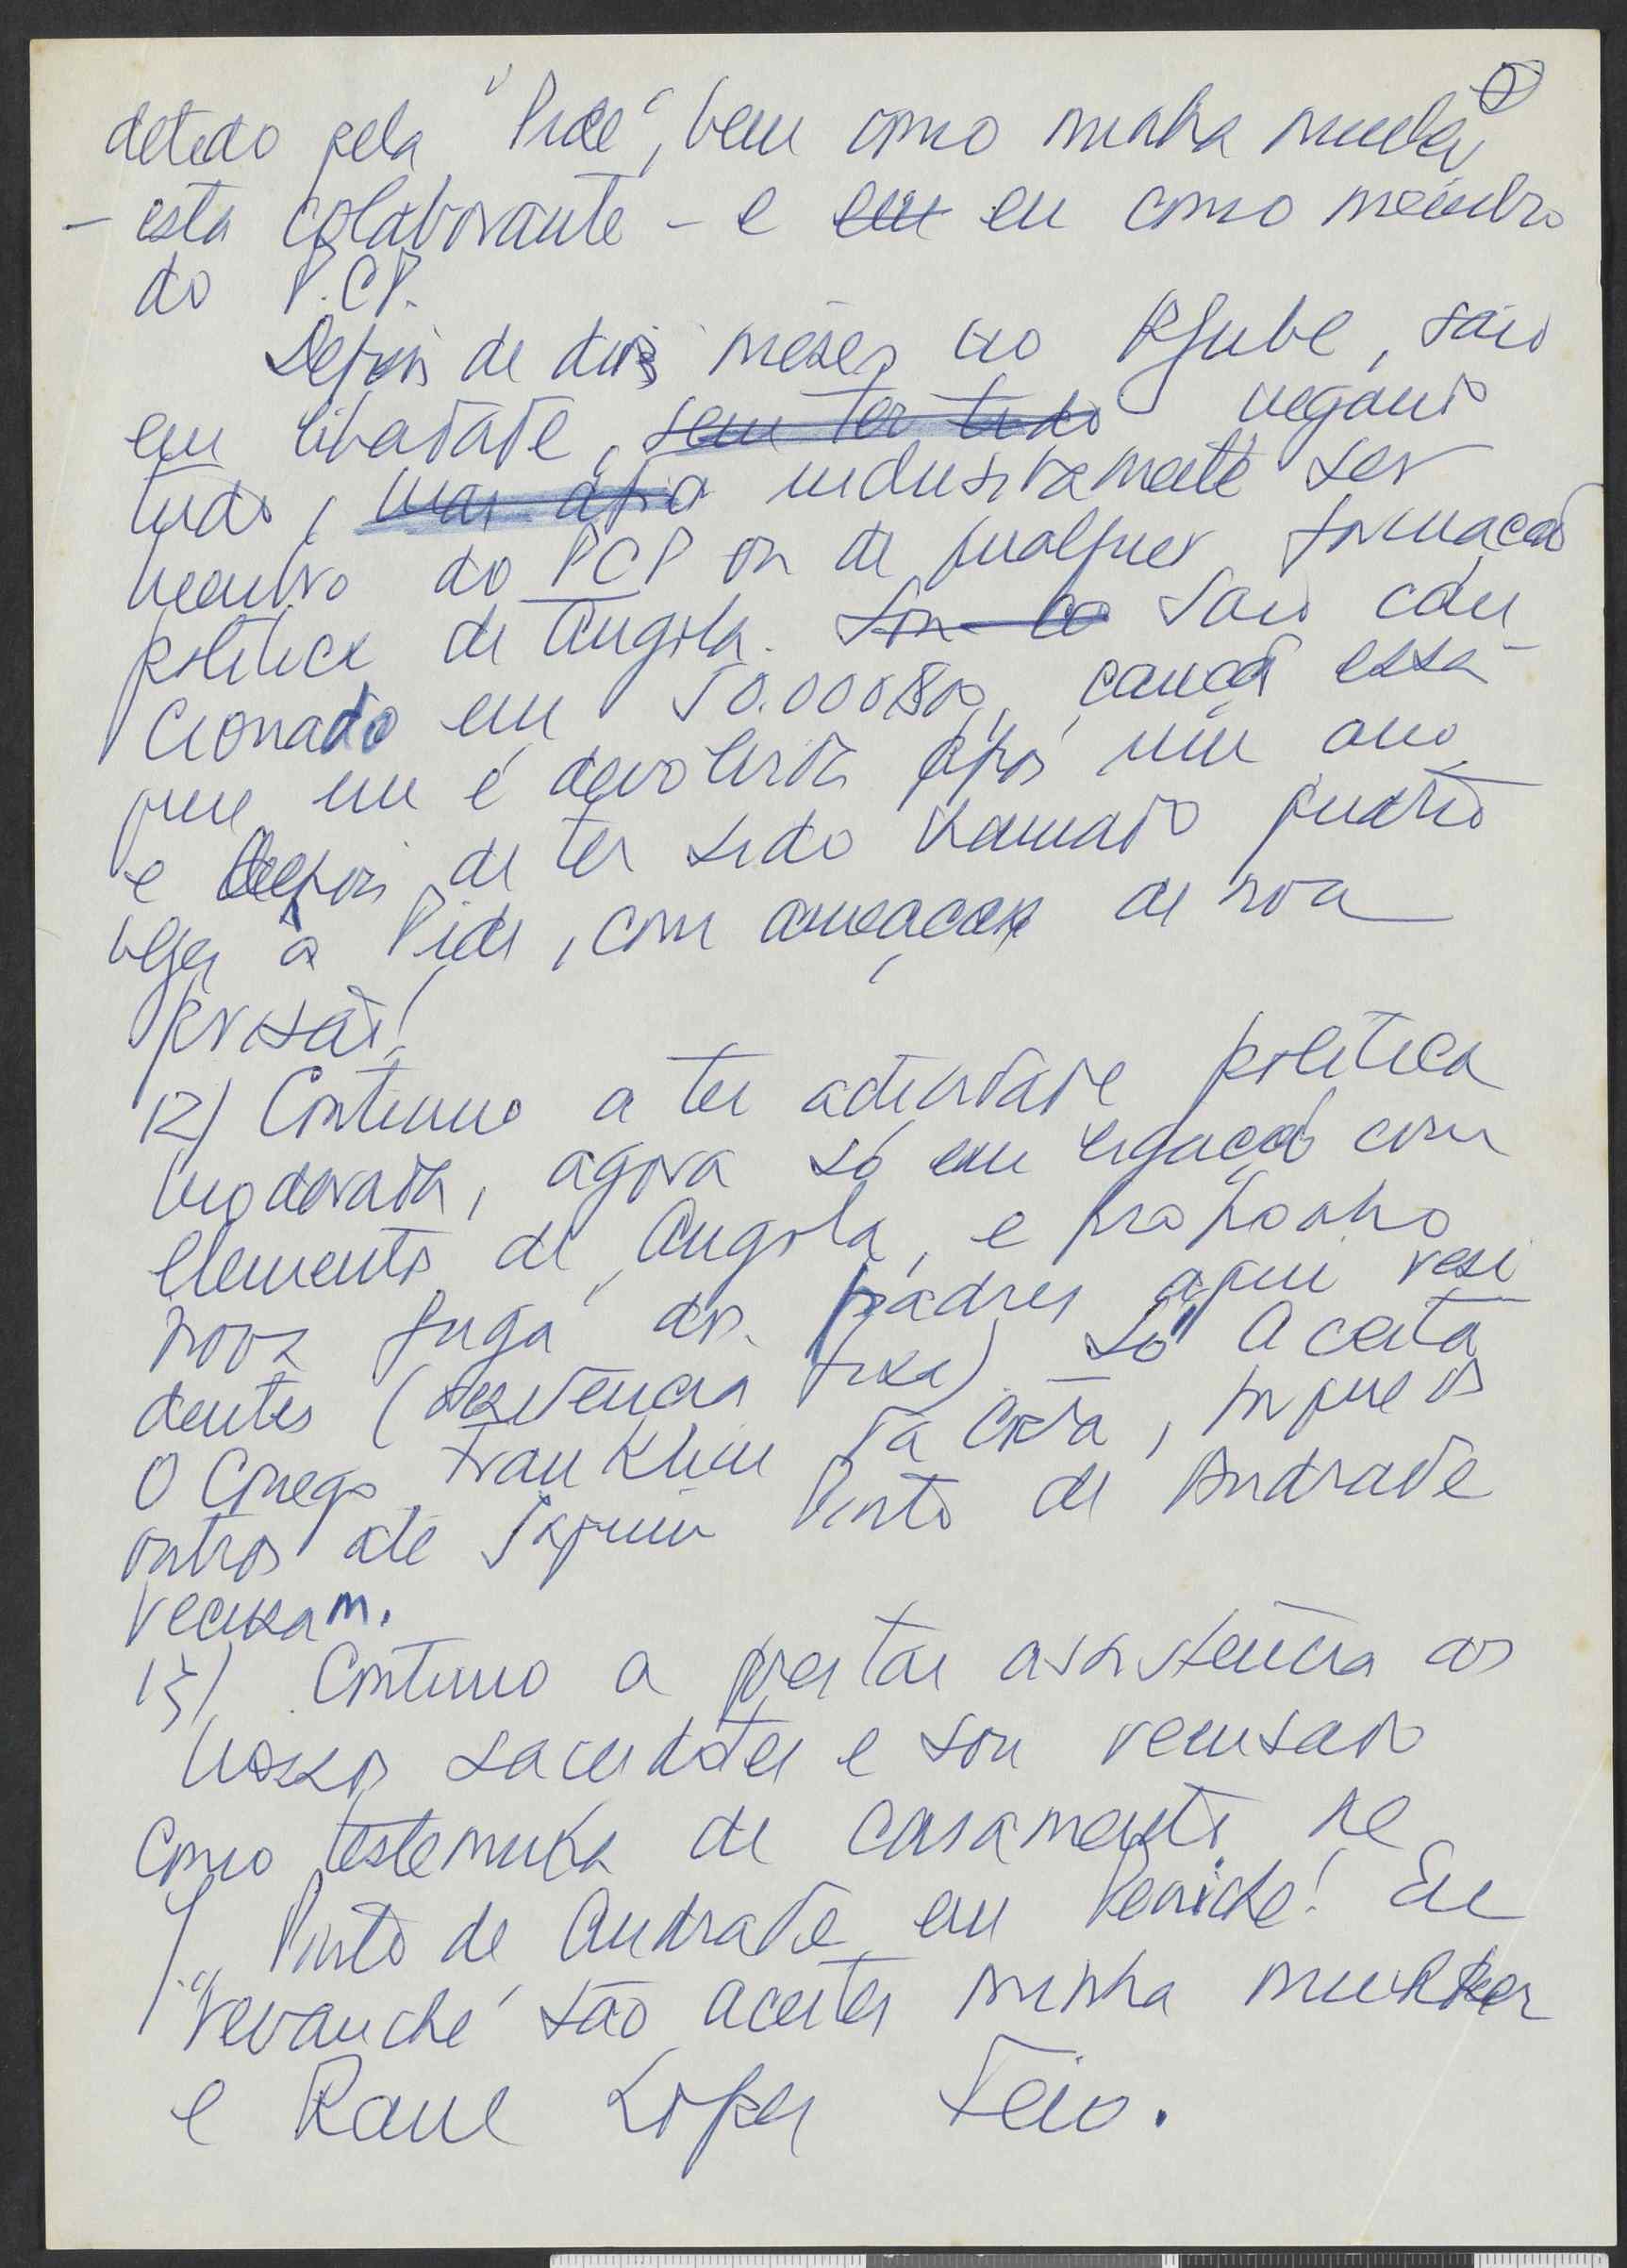 detido pela "Pide", bem como minha mulher
- esta colaborante - e eu eu como membro
do P.C.P.
Depois de dois mêses no Aljube, saio
em liberdade, sem ter tido negando
tudo, inclusivamente ser
membro do PCP ou de qualquer formação
politica de Angola. Sou Saio cau-
cionado em 50.000$00, caução essa
que me é devolvida após um ano
e depois de ter sido chamado quatro
vezes à Pide, com ameaças de nova
prisão!
12) Continuo a ter actividade politica
moderada, agora só em ligação com
elementos de Angola, e proponho
nova fuga dos padres aqui resi
dentes (residência fixa) - só aceita
o Cónego Franklim da Costa, porque os
outros até Joaquim Pinto de Andrade
recusam.
13) Continuo a prestar assistência aos
nossos sacerdotes e sou recusado
como testemunha de casamento de
J. Pinto de Andrade em Peniche! Em
"revanche" são aceites minha mulher
e Raul Lopes Feio.